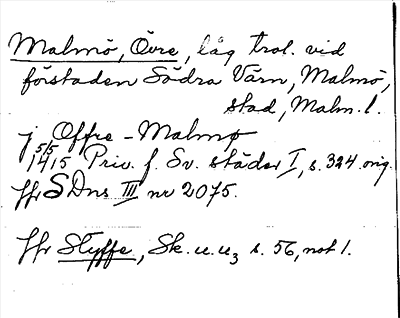 Malmö, Övre, låg trol. vid
förstaden Södra Värn, Malmö,
stad, Malm. l.
j Offre-Malmø
5/5 1415 Priv. f. Sv. städer I, s. 324. orig.
jfr SDns III nr 2075.
Jfr Styffe, Sk. u. u3 s. 56, not 1.